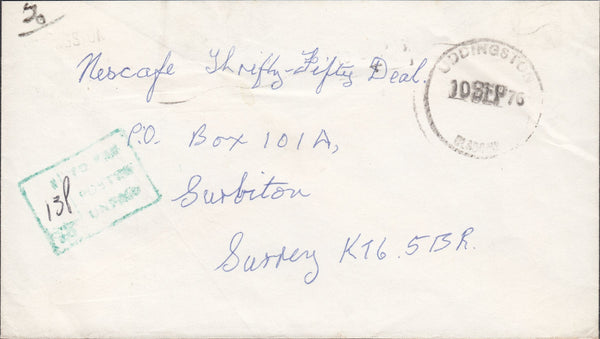 20
Nescafe Thrifty-Fifty Deal.
UDDINGSTON
10 SEP 76
GLASGOW
P.O. Box 101A,
TO PAY
13p POSTAGE
UNPAID
Surbiton
Surrey KT6. 5BR.